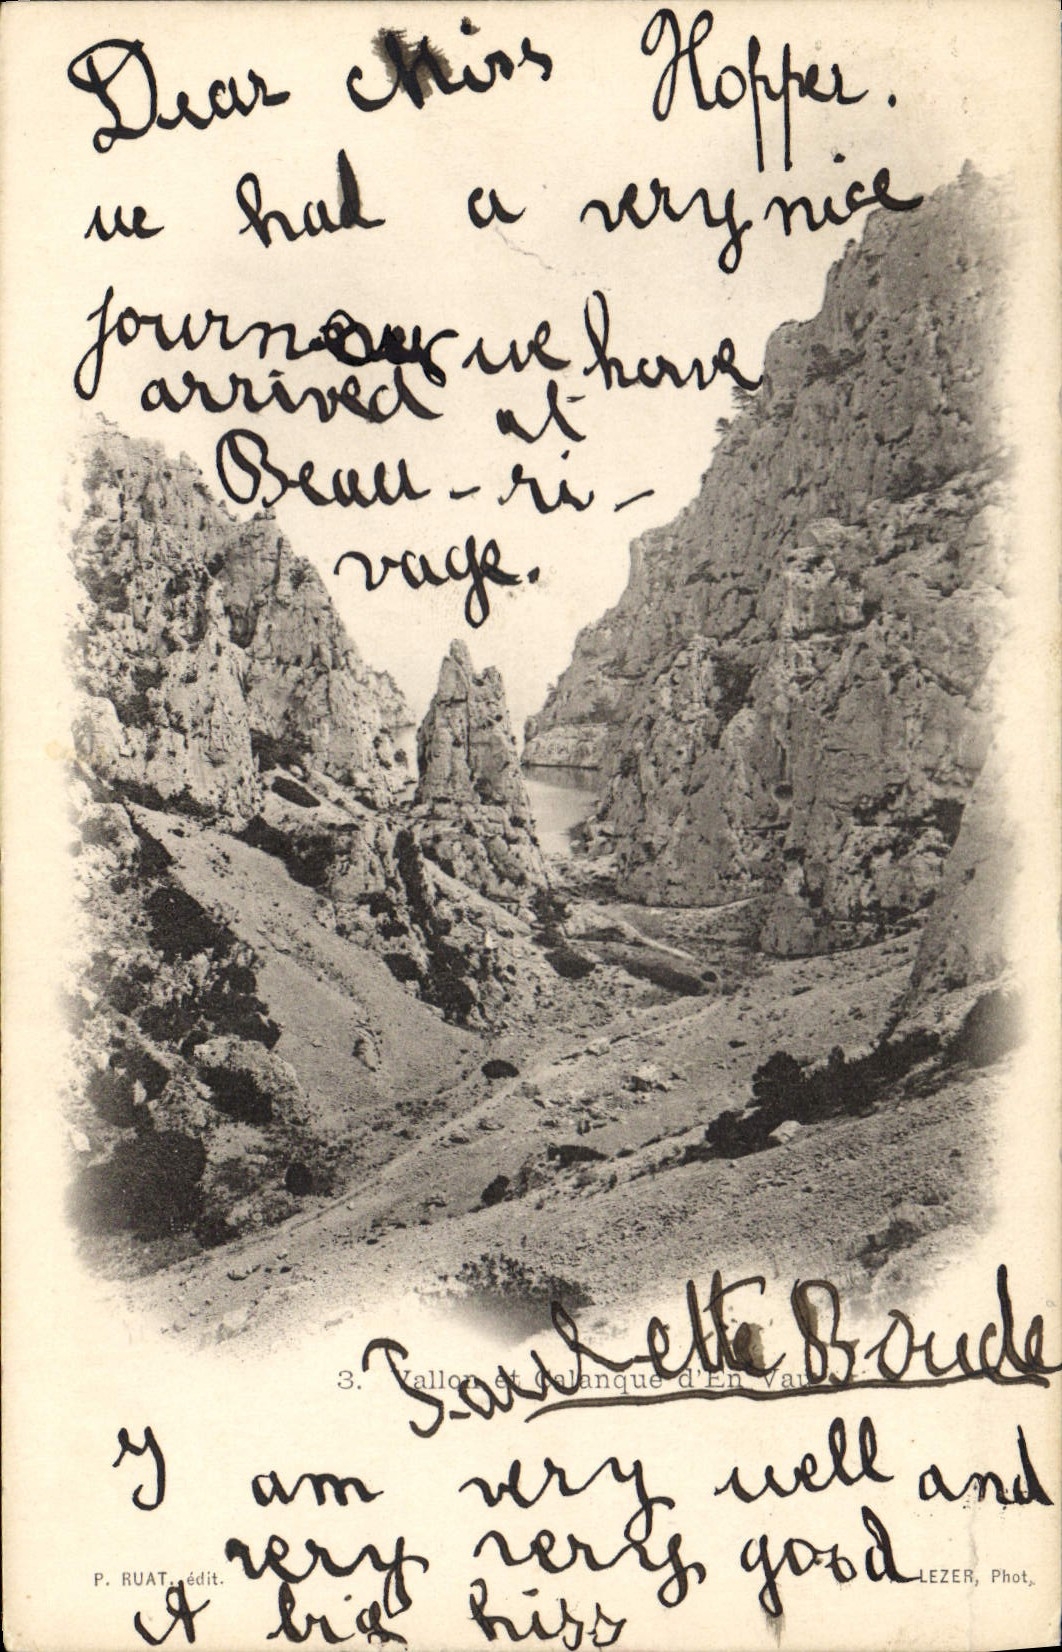 Dear Miss Hopper.
we had a very nice
journey we have
arrived at
Beau-ri-
vage.
Paulette Boude
3. Vallon et Calanque d'En Vau
I am very well and
very very good
P. RUAT, édit.
LEZER, Phot.
A big kiss